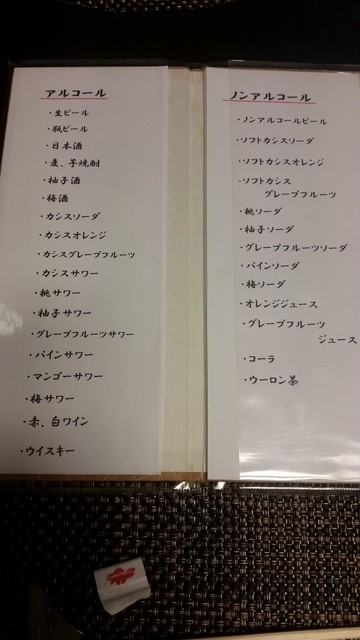 アルコール
・生ビール
・瓶ビール
・日本酒
・麦、芋焼酎
・柚子酒
・梅酒
・カシスソーダ
・カシスオレンジ
・カシスグレープフルーツ
・カシスサワー
・桃サワー
・柚子サワー
・グレープフルーツサワー
・パインサワー
・マンゴーサワー
・梅サワー
・赤、白ワイン
・ウイスキー
ノンアルコール
・ノンアルコールビール
・ソフトカシスソーダ
・ソフトカシスオレンジ
・ソフトカシス
グレープフルーツ
・桃ソーダ
・柚子ソーダ
・グレープフルーツソーダ
・パインソーダ
・梅ソーダ
・オレンジジュース
・グレープフルーツ
ジュース
・コーラ
・ウーロン茶